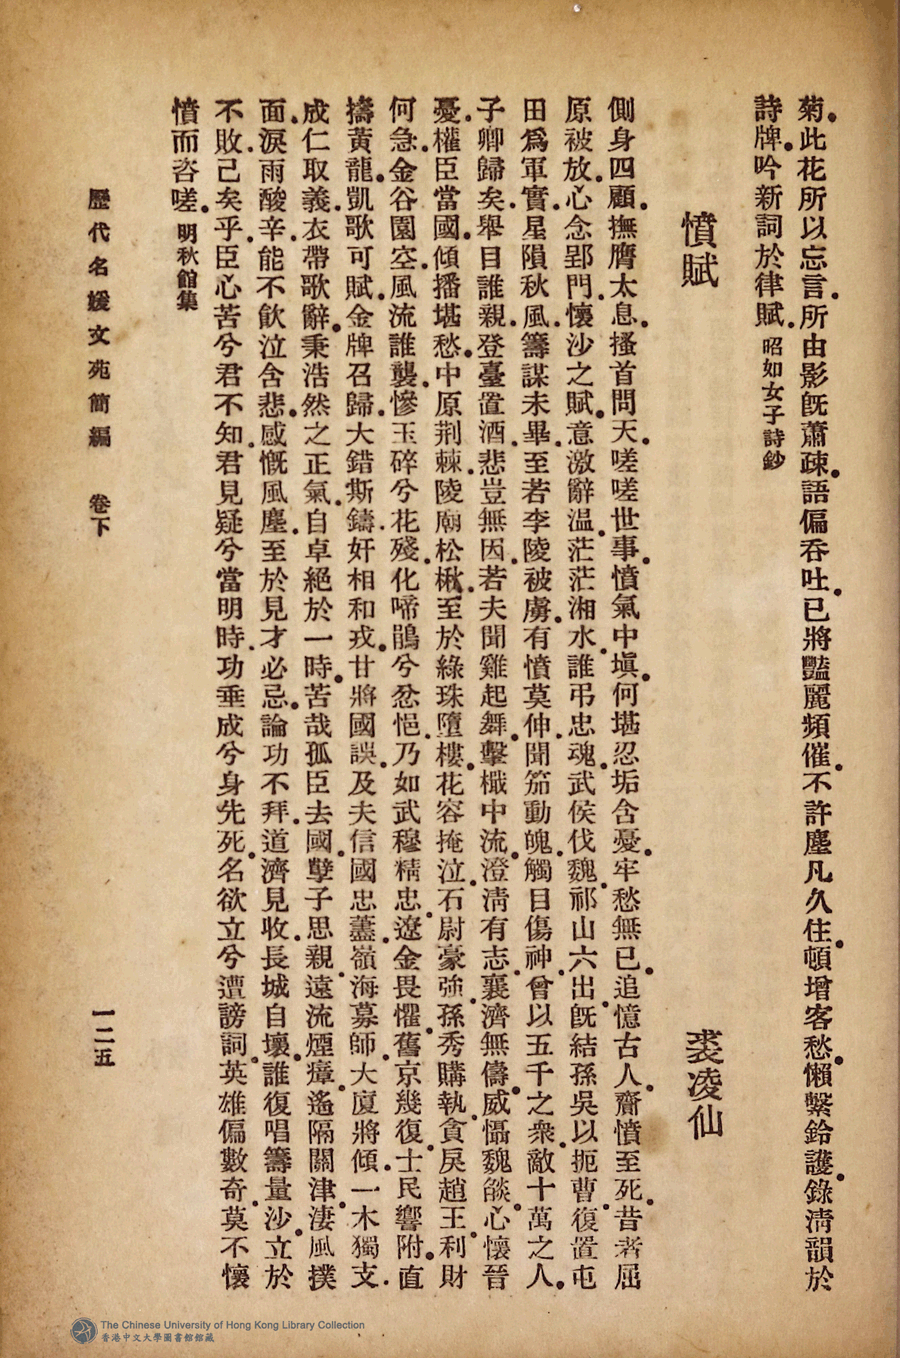 菊。此花所以忘言。所由影旣蕭疎。語偏吞吐。已將豔麗頻催。不許塵凡久住。頓增客愁。懶繫鈴護。錄淸韻於
詩牌。吟新詞於律賦。昭如女子詩鈔
憤賦 裘凌仙
側身四顧。撫膺太息。搔首問天。嗟嗟世事。憤氣中塡。何堪忍垢含憂。牢愁無已。追憶古人。齎憤至死。昔者屈
原被放。心念郢門。懷沙之賦。意激辭溫。茫茫湘水。誰弔忠魂。武侯伐魏。祁山六出。旣結孫吳以扼曹。復置屯
田爲軍實。星隕秋風。籌謀未畢。至若李陵被虜。有憤莫伸。聞笳動魄。觸目傷神。曾以五千之衆。敵十萬之人。
子卿歸矣。舉目誰親。登臺置酒。悲豈無因。若夫聞雞起舞。擊檝中流。澄淸有志。襄濟無儔。威懾魏燄。心懷晉
憂。權臣當國。傾播堪愁。中原荆棘。陵廟松楸。至於綠珠墮樓。花容掩泣。石尉豪強。孫秀購執。貪戾趙王。利財
何急。金谷園空。風流誰襲。慘玉碎兮花殘。化啼鵑兮忿悒。乃如武穆精忠。遼金畏懼。舊京幾復。士民響附。直
擣黃龍。凱歌可賦。金牌召歸。大錯斯鑄。奸相和戎。甘將國誤。及夫信國忠藎。嶺海募師。大廈將傾。一木獨支。
成仁取義。衣帶歌辭。秉浩然之正氣。自卓絕於一時。苦哉孤臣去國。孽子思親。遠流煙瘴。遙隔關津。淒風撲
面。淚雨酸辛。能不飮泣含悲。感慨風塵。至於見才必忌。論功不拜。道濟見收。長城自壞。誰復唱籌量沙。立於
不敗。已矣乎。臣心苦兮君不知。君見疑兮當明時。功垂成兮身先死。名欲立兮遭謗詞。英雄偏數奇。莫不懷
憤而咨嗟。明秋館集
歷代名媛文苑簡編 卷下 一二五
The Chinese University of Hong Kong Library Collection
香港中文大學圖書館館藏